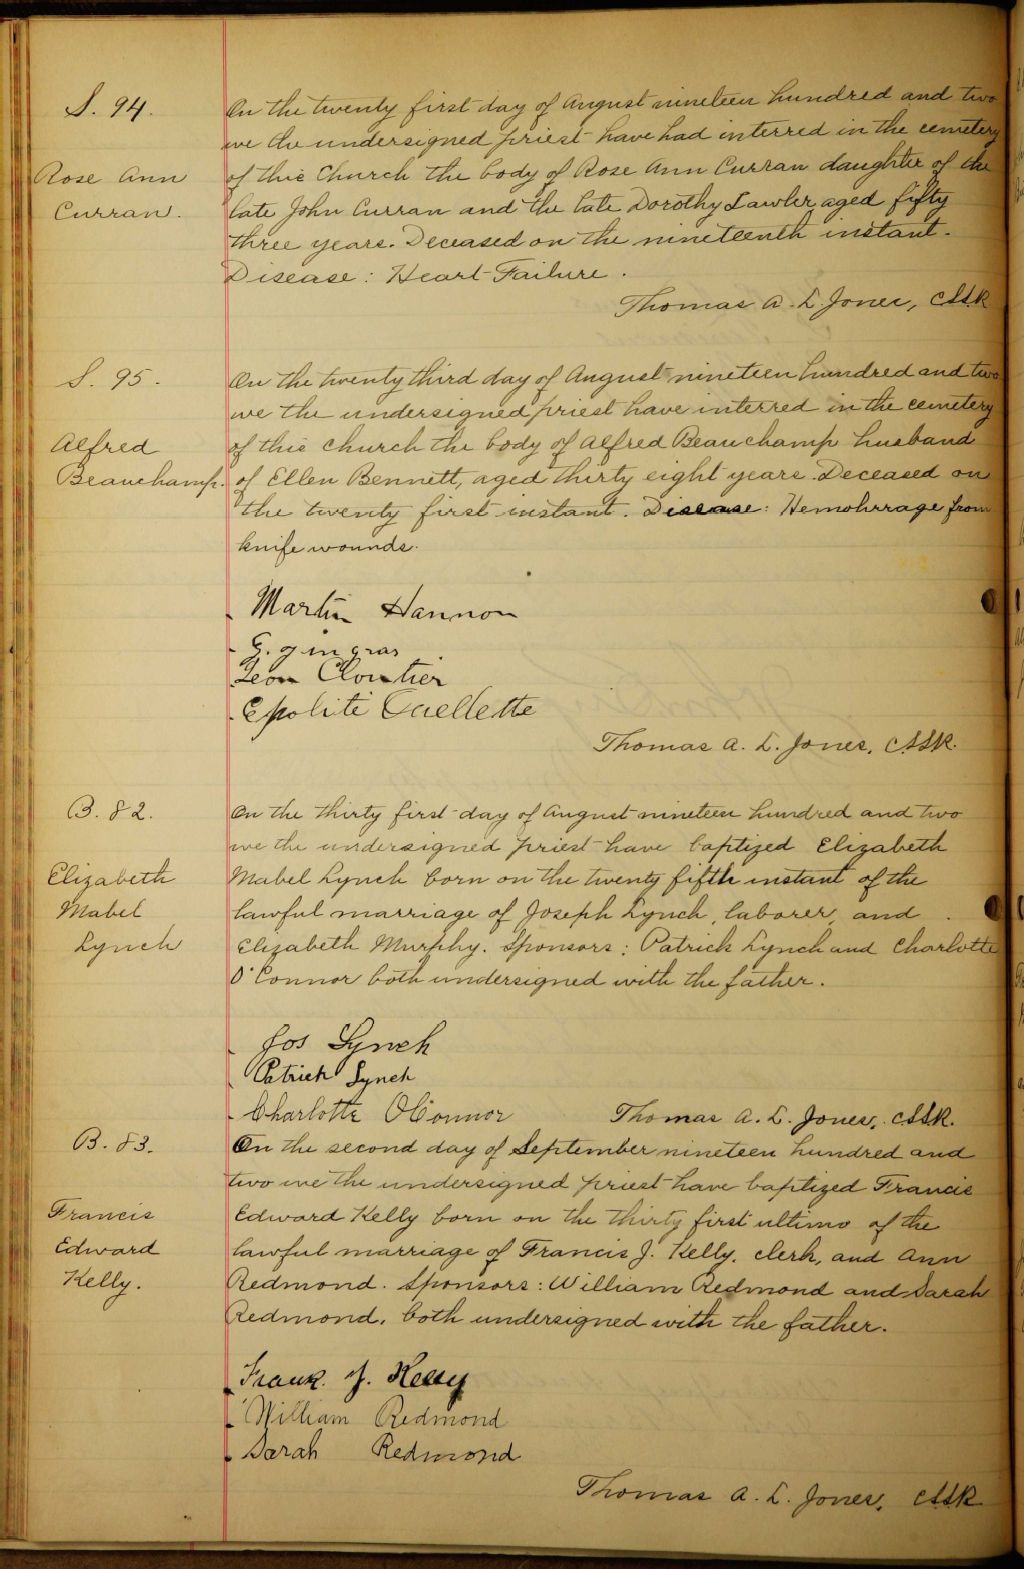 S. 94.
Rose Ann
Curran.
On the twenty first day of August nineteen hundred and two
we the undersigned priest have had interred in the cemetery
of this Church the body of Rose Ann Curran daughter of the
late John Curran and the late Dorothy Lawler aged fifty
three years. Deceased on the nineteenth instant.
Disease: Heart Failure.
Thomas A. L. Jones, CSSR
S. 95.
Alfred
Beauchamp.
On the twenty third day of August nineteen hundred and two
we the undersigned priest have interred in the cemetery
of this Church the body of Alfred Beauchamp husband
of Ellen Bennett, aged thirty eight years. Deceased on
the twenty first instant. Disease: Hemohrrage from
knife wounds.
Martin Hannon
G. gingras
Leon Cloutier
Epolite Ouellette
Thomas A. L. Jones, CSSR.
B. 82.
Elizabeth
Mabel
Lynch
On the thirty first day of August nineteen hundred and two
we the undersigned priest have baptized Elizabeth
Mabel Lynch born on the twenty fifth instant of the
lawful marriage of Joseph Lynch, laborer, and
Elizabeth Murphy. Sponsors: Patrick Lynch and Charlotte
O'Connor both undersigned with the father.
Jos Lynch
Patrick Lynch
Charlotte O'Connor
Thomas A. L. Jones, CSSR.
B. 83.
Francis
Edward
Kelly.
On the second day of September nineteen hundred and
two we the undersigned priest have baptized Francis
Edward Kelly born on the thirty first ultimo of the
lawful marriage of Francis J. Kelly, clerk, and Ann
Redmond. Sponsors: William Redmond and Sarah
Redmond, both undersigned with the father.
Frank. J. Kelly
William Redmond
Sarah Redmond
Thomas A. L. Jones, CSSR